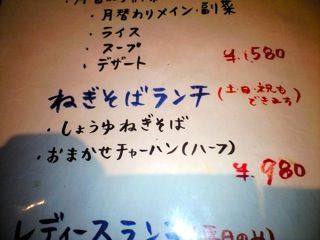 ・月替わりメイン・副菜
・ライス
・スープ
・デザート
¥1,580
ねぎそばランチ (土・日・祝も
できます)
・しょうゆねぎそば
・おまかせチャーハン(ハーフ)
¥980
レディースランチ